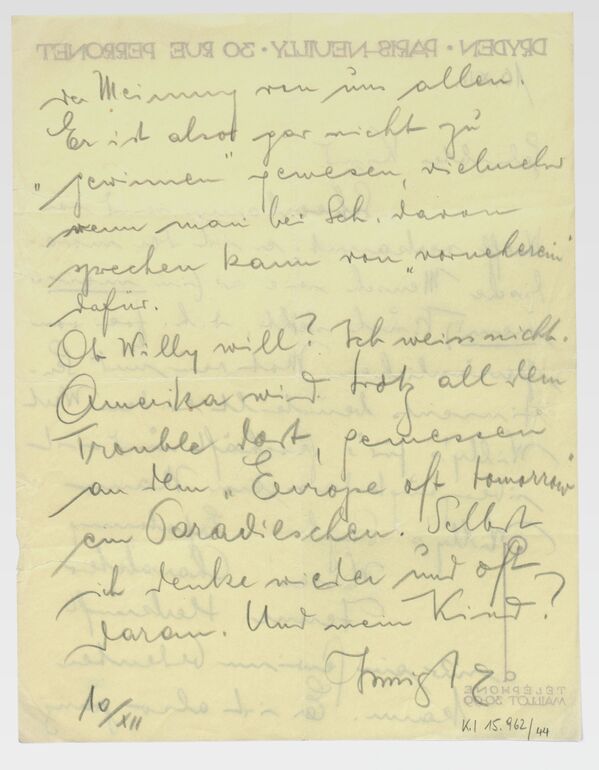 DRYDEN · PARIS-NEUILLY · 30 RUE PERRONET
der Meinung von uns allen.
Er ist also gar nicht zu
"gewinnen" gewesen, vielmehr
wenn man bei Sch. davon
sprechen kann von "vorneherein"
dafür.
Ob Willy will? Ich weiss nicht.
Amerika wird trotz all dem
Trouble dort, gemessen
an dem "Europe oft tomorrow"
ein Paradieschen. Selbst
ich denke wieder und oft
daran. Und mein Kind?
Innigst
10/XII
TÉLÉPHONE
MAILLOT
K.I 15.962/44